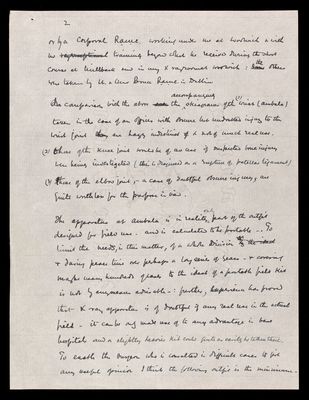 2
or by a Corporal Rance, working under me at Woolwich & with
no training beyond what he received during the short
course at Millbank and in my X ray room at Woolwich: the other
was taken by the Bruce Rance in Dublin
accompanying
In comparison with the above the skiagrams of the (1) wrist (Ambala)
taken in the case of an officer with obscure but undoubted injury to the
wrist joint are hazy indistinct & not of much real use.
(2) those of the knee joint would be of no use if suspected bone injury
were being investigated (this is diagnosed as a rupture of patellar ligament)
(3) those of the elbow joint, a case of doubtful obscure injury, are
quite worthless for the purpose in view.
The apparatus at Ambala is in reality only part of the outfit
designed for field use and is calculated to be portable. To
limit the needs, in this matter, of a whole Division
& during peace time over perhaps a long series of years & covering
maybe many hundreds of cases to the ideal of a portable field kit
is not by any means advisable: further, experience has proved
that X ray apparatus is of doubtful if any real use in the actual
field - it can be only made use of to any advantage in base
hospitals and a slightly heavier kit could quite as easily be taken there.
To enable the Surgeon who is consulted in difficult cases to give
any useful opinion I think the following outfit is the minimum.